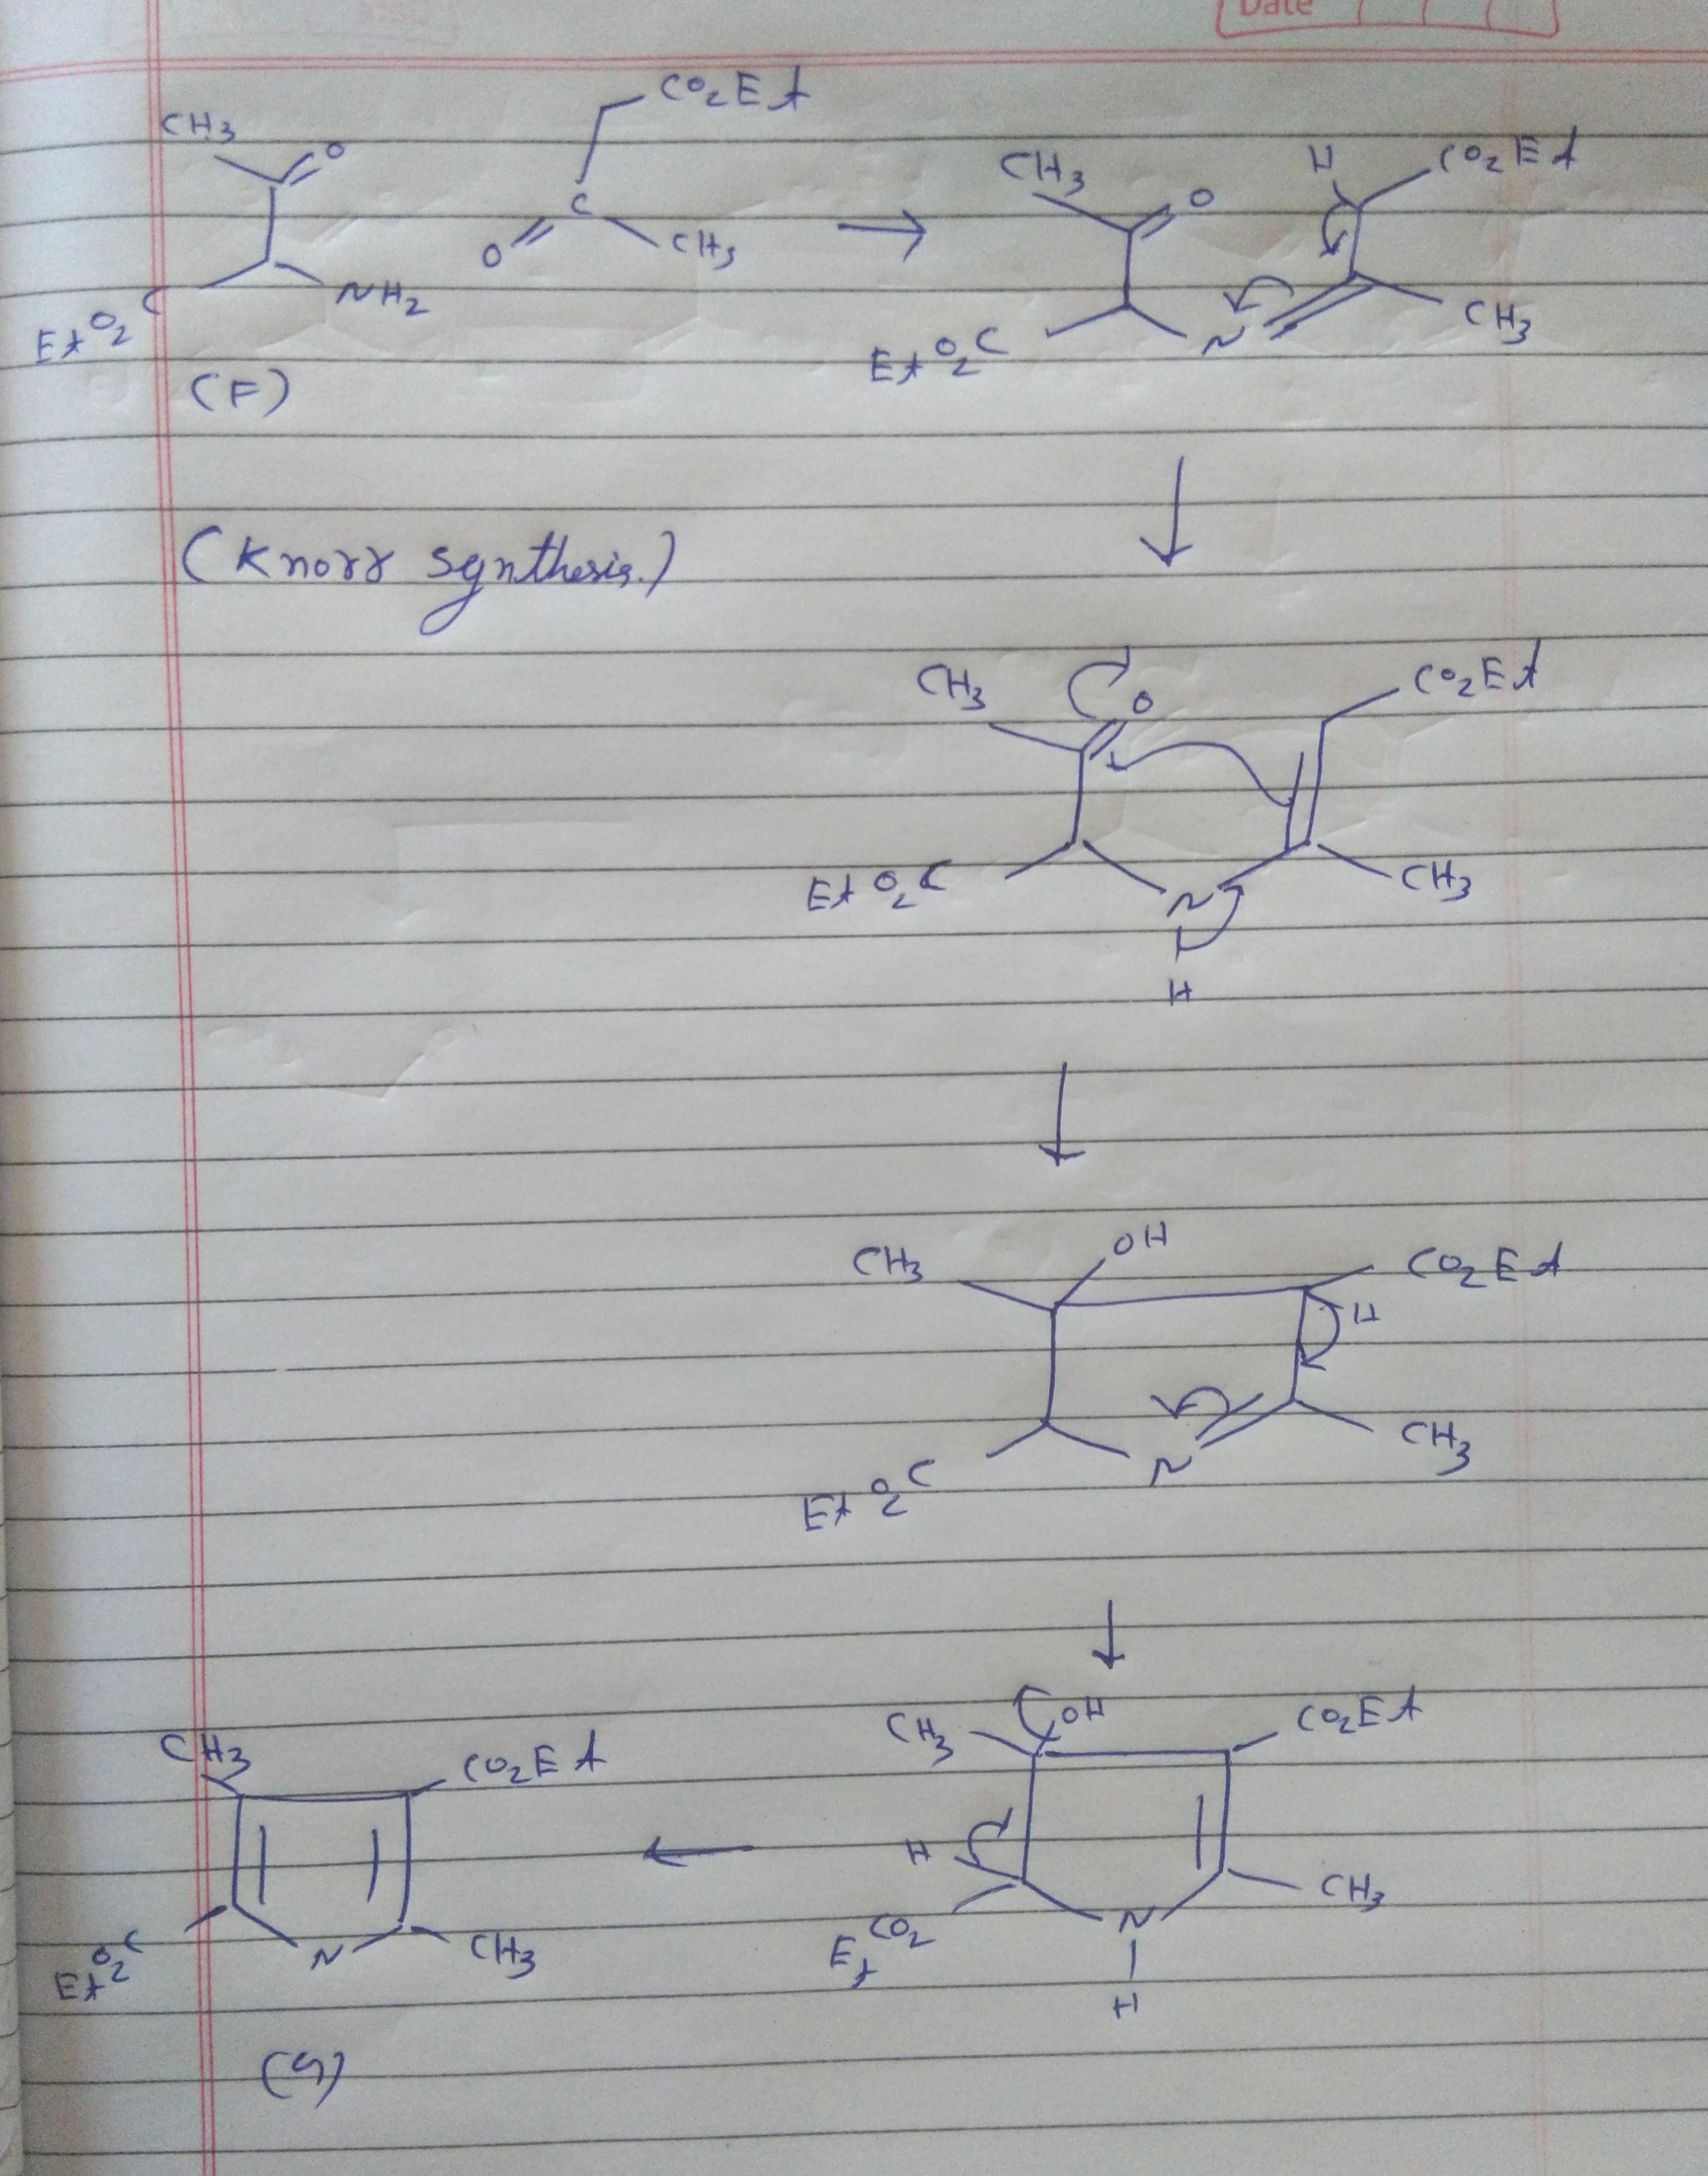 Date
CO2Et
CH3
O
C
O
CH3
EtO2C
NH2
(F)
CH3
O
H
CO2Et
EtO2C
N
CH3
(Knorr synthesis.)
CH3
O
CO2Et
EtO2C
N
H
CH3
CH3
OH
CO2Et
H
EtO2C
N
CH3
CH3
OH
CO2Et
H
EtCO2
N
H
CH3
CH3
CO2Et
EtO2C
N
CH3
(G)